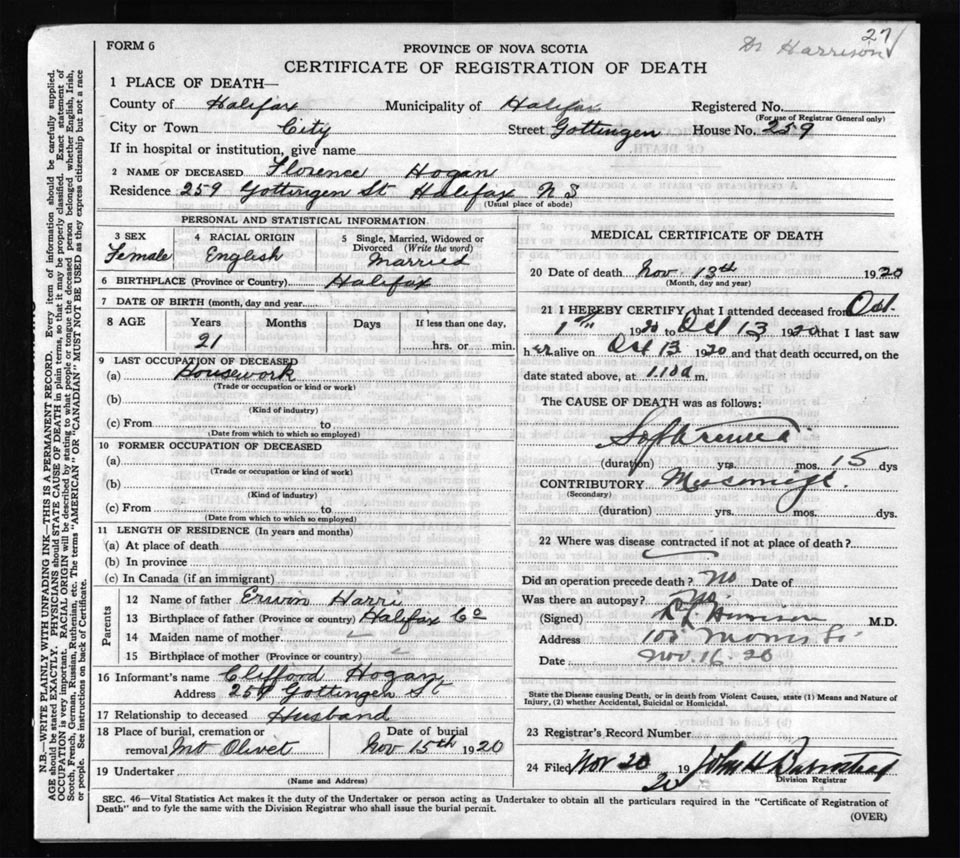 27
Dr Harrison
FORM 6
PROVINCE OF NOVA SCOTIA
CERTIFICATE OF REGISTRATION OF DEATH
1 PLACE OF DEATH—
County of Halifax Municipality of Halifax Registered No.
(For use of Registrar General only)
City or Town City Street Gottingen House No. 259
If in hospital or institution, give name
2 NAME OF DECEASED Florence Hogan
Residence 259 Gottingen St Halifax N S
(Usual place of abode)
PERSONAL AND STATISTICAL INFORMATION
3 SEX 4 RACIAL ORIGIN 5 Single, Married, Widowed or Divorced (Write the word)
Female English Married
6 BIRTHPLACE (Province or Country) Halifax
7 DATE OF BIRTH (month, day and year)
8 AGE Years Months Days If less than one day,
21 hrs. or min.
9 LAST OCCUPATION OF DECEASED
(a) Housework
(Trade or occupation or kind or work)
(b)
(Kind of industry)
(c) From to
(Date from which to which so employed)
10 FORMER OCCUPATION OF DECEASED
(a)
(Trade or occupation or kind of work)
(b)
(Kind of industry)
(c) From to
(Date from which to which so employed)
11 LENGTH OF RESIDENCE (In years and months)
(a) At place of death
(b) In province
(c) In Canada (if an immigrant)
Parents
12 Name of father Erwin Harri
13 Birthplace of father (Province or country) Halifax Co
14 Maiden name of mother
15 Birthplace of mother (Province or country)
16 Informant's name Clifford Hogan
Address 259 Gottingen St
17 Relationship to deceased Husband
18 Place of burial, cremation or Date of burial
removal Mt Olivet Nov 15th 1920
19 Undertaker
(Name and Address)
MEDICAL CERTIFICATE OF DEATH
20 Date of death Nov 13th 1920
(Month, day and year)
21 I HEREBY CERTIFY, that I attended deceased from Oct.
1st 1920 to Oct 13 1920 that I last saw
her alive on Oct 13 1920 and that death occurred, on the
date stated above, at 1.10 a m.
The CAUSE OF DEATH was as follows:
(duration) yrs. mos. 15 dys
CONTRIBUTORY
(Secondary)
(duration) yrs. mos. dys.
22 Where was disease contracted if not at place of death?
Did an operation precede death? No Date of
Was there an autopsy? No
(Signed) Harrison M.D.
Address 105 Morris St
Date Nov. 16. 20
State the Disease causing Death, or in death from Violent Causes, state (1) Means and Nature of
Injury, (2) whether Accidental, Suicidal or Homicidal.
23 Registrar's Record Number
24 Filed Nov 20 19 John H Barnstead
20 Division Registrar
SEC. 46—Vital Statistics Act makes it the duty of the Undertaker or person acting as Undertaker to obtain all the particulars required in the "Certificate of Registration of
Death" and to fyle the same with the Division Registrar who shall issue the burial permit.
(OVER)
N.B.—WRITE PLAINLY WITH UNFADING INK—THIS IS A PERMANENT RECORD. Every item of information should be carefully supplied.
AGE should be stated EXACTLY. PHYSICIANS should STATE CAUSE OF DEATH in plain terms, so that it may be properly classified. Exact statement of
OCCUPATION is very important. RACIAL ORIGIN will be described by stating to what people or tongue the deceased person belonged whether English, Irish,
Scotch, French, German, Russian, Ruthenian, etc. The terms "AMERICAN" OR "CANADIAN" MUST NOT BE USED as they express citizenship but not a race
or people. See instructions on back of Certificate.